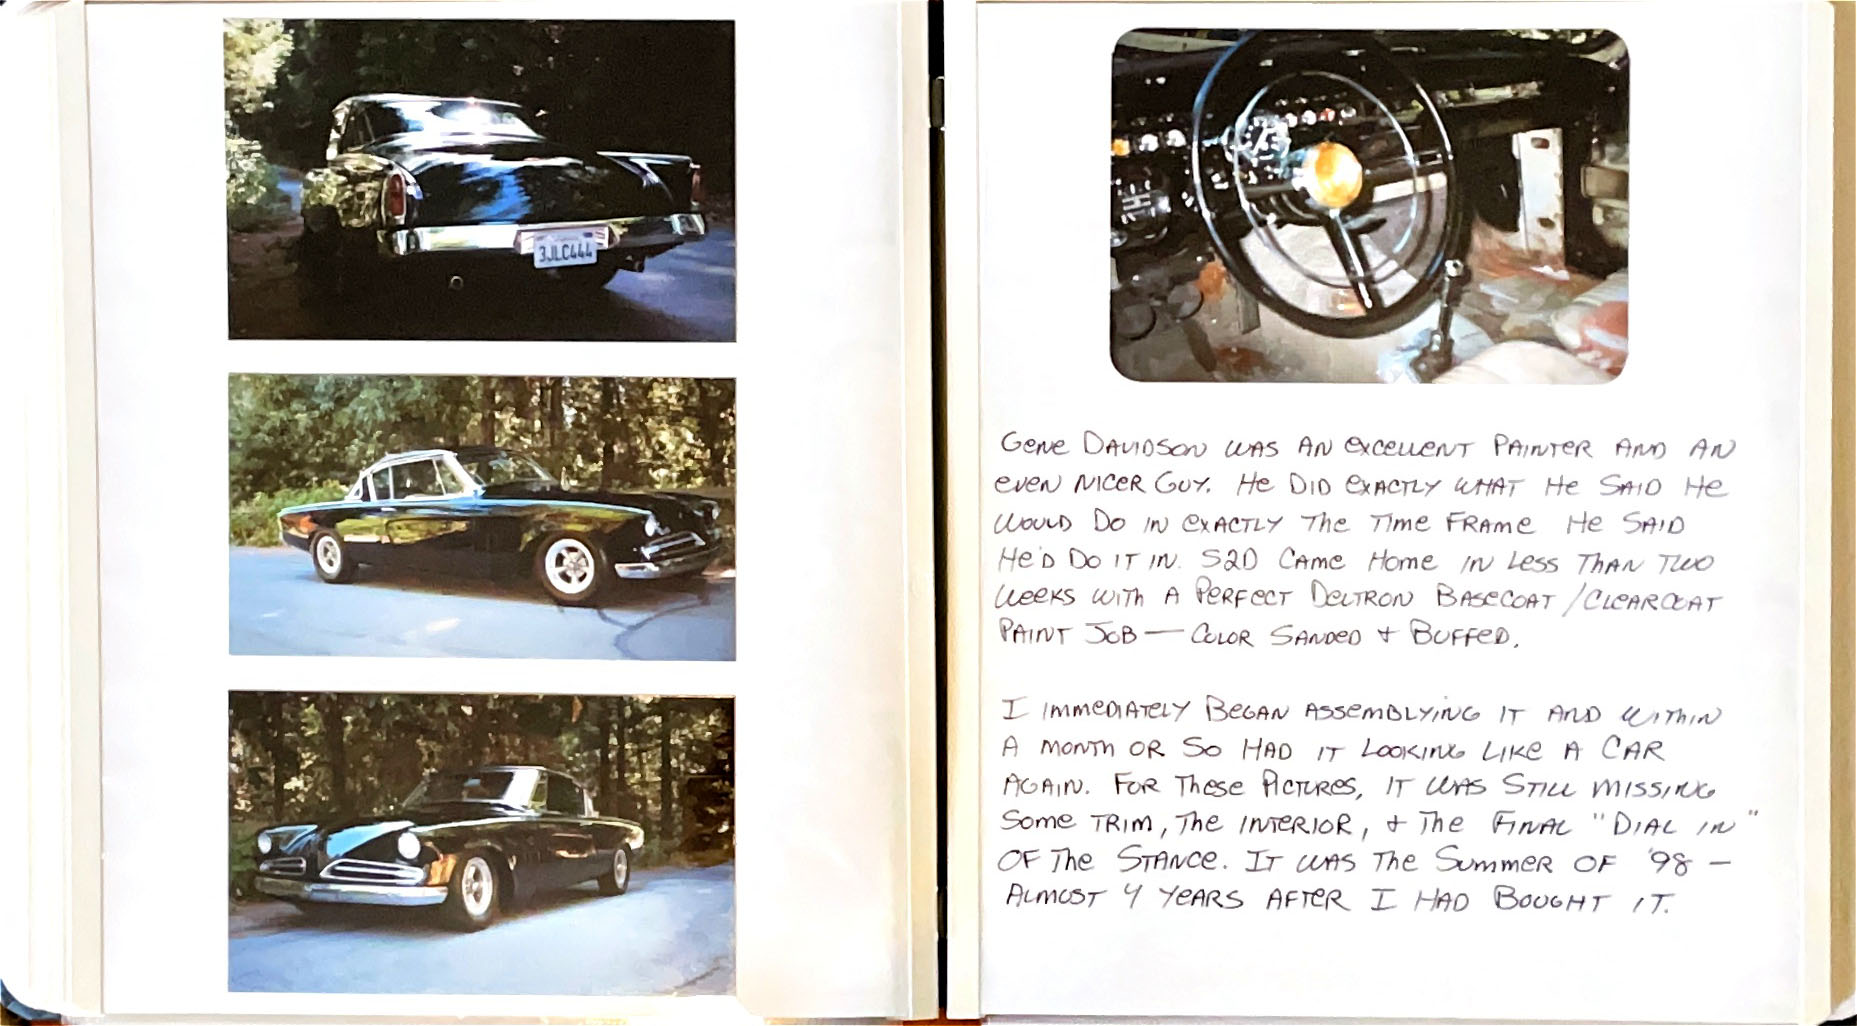 3JLC444
GENE DAVIDSON WAS AN EXCELLENT PAINTER AND AN
EVEN NICER GUY. HE DID EXACTLY WHAT HE SAID HE
WOULD DO IN EXACTLY THE TIME FRAME HE SAID
HE'D DO IT IN. S2D CAME HOME IN LESS THAN TWO
WEEKS WITH A PERFECT DELTRON BASECOAT/CLEARCOAT
PAINT JOB — COLOR SANDED & BUFFED.
I IMMEDIATELY BEGAN ASSEMBLYING IT AND WITHIN
A MONTH OR SO HAD IT LOOKING LIKE A CAR
AGAIN. FOR THESE PICTURES, IT WAS STILL MISSING
SOME TRIM, THE INTERIOR, & THE FINAL "DIAL IN"
OF THE STANCE. IT WAS THE SUMMER OF '98 —
ALMOST 4 YEARS AFTER I HAD BOUGHT IT.